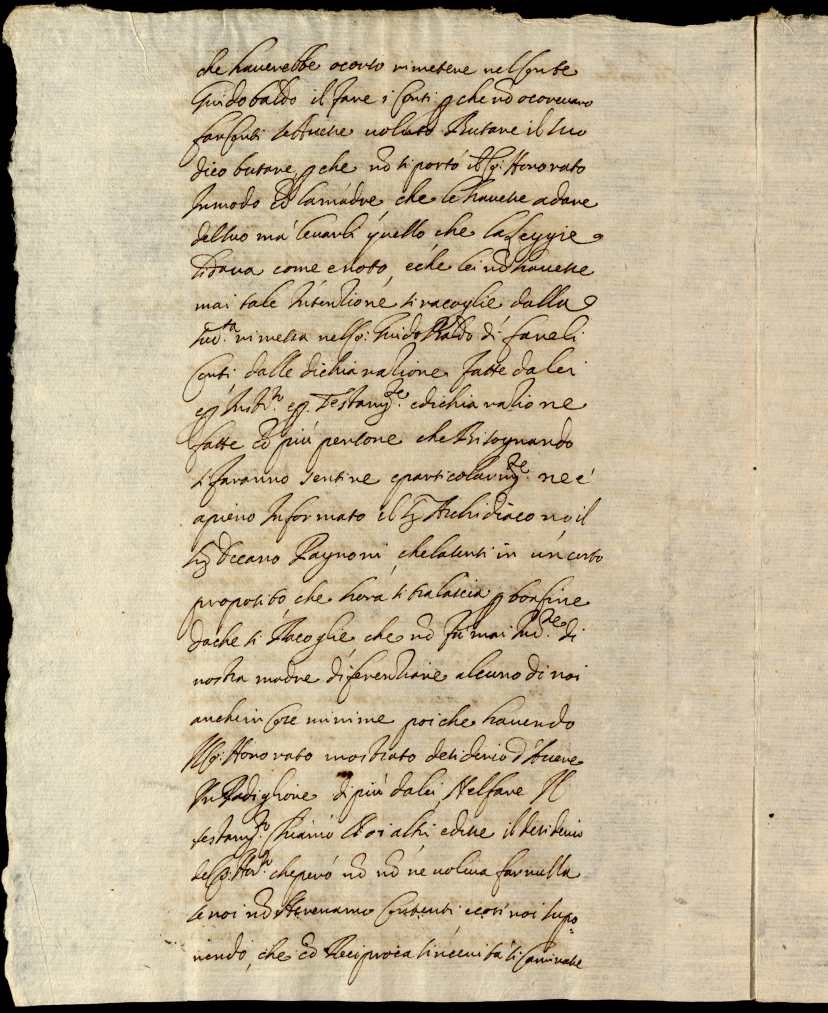 che hauerebbe ocorso rimetere nel Conte
Guidobaldo il fare i Conti p che nō ocorevano
far Conti se hauesse uoluto Butare il suo
dico butare, p che nō si portò il Sr. Honorato
In modo cō la madre che le hauesse a dare
del suo mà leuarli quello che la Leggie
li daua come è noto, e che lei nō hauesse
mai tale Intentione si racoglie dalla
sud.ta rimessa nel Sr. Guido Baldo di fare li
Conti dalle dichiaratione fatte da lei
p Instr.to p Testam.to e dichiaratione
fatte cō più persone che Bisognando
si faranno sentire e particolarm.te ne è
apieno Informato il Sr Archidiacono il
Sr Decano Pagnoni, che la sentì in un certo
proposito che hora si tralascia p bon fine
da che si Racoglie che nō fù mai Int.ne di
nostra madre diferentiare alcuno di noi
anche in Cose minime poi che hauendo
Il Sr. Honorato mostrato desiderio d'hauere
Un Padiglione di più da lei, Nel fare Il
testam.to Chiamò noi altri e disse il desiderio
del Sr. Hon.to che però nō nō ne uoleua far nulla
se noi nō Sterevamo Contenti e così noi supo-
nendo, che cō Reciproca sincerità si Caminasse